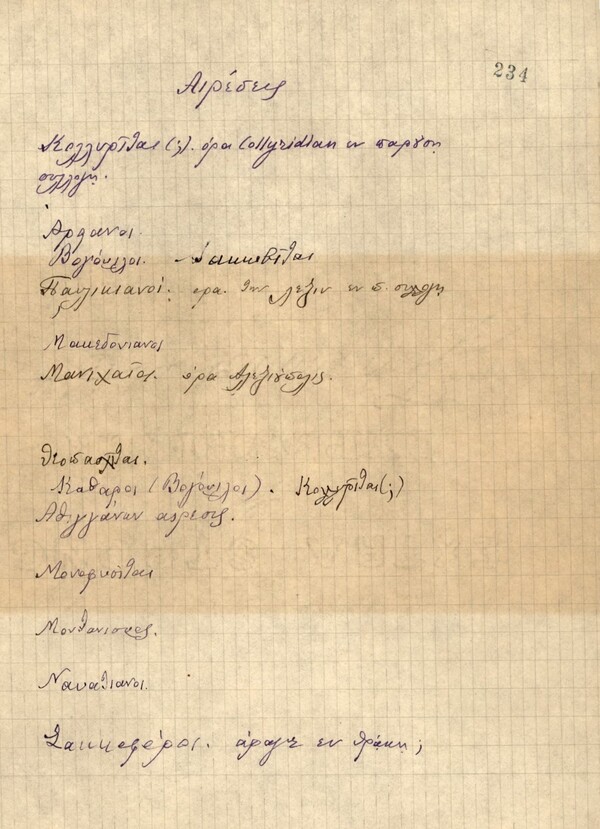 234
Αιρέσεις
Κολλυρίδται (;). όρα Collyridian εν παρούση
συλλογή.
Αρειανοι.
Βογόμιλοι. Ιακωβίται
Παυλικιανοί. ορα την λέξιν εν π. συλλογη
Μακεδονιανοι
Μανιχαίοι. όρα Αλεξιούπολις.
Θεοπασχίται.
Καθαροι (Βογόμιλοι). Κολλυρίται (;)
Αθιγγάνων αιρεσις.
Μονοφυσίται
Μοντανισταί.
Ναυατιανοι.
Σακκοφόροι. άραγε εν Θράκη;